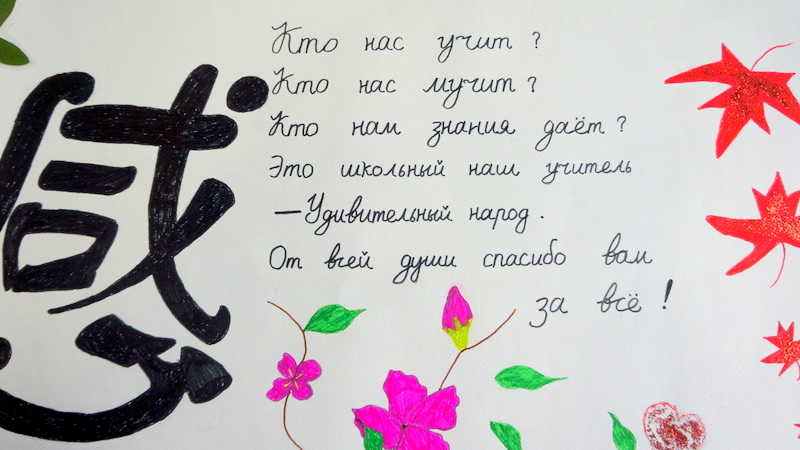 感
Кто нас учит?
Кто нас мучит?
Кто нам знания даёт?
Это школьный наш учитель
— Удивительный народ.
От всей души спасибо вам
за всё!